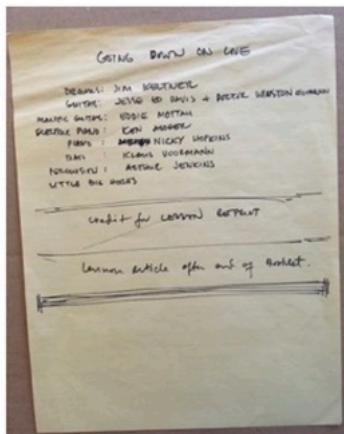 GOING DOWN ON LOVE
DRUMS: JIM KELTNER
GUITAR: JESSE ED DAVIS + DOCTOR WINSTON
GUITAR: EDDIE MOTTAU
PIANO: KEN ASHER
PIANO: NICKY HOPKINS
KLAUS VOORMANN
PERCUSSION: ARTHUR JENKINS
LITTLE BIG HORNS
credit for LENNON REPRINT
Lennon article after end of booklet.